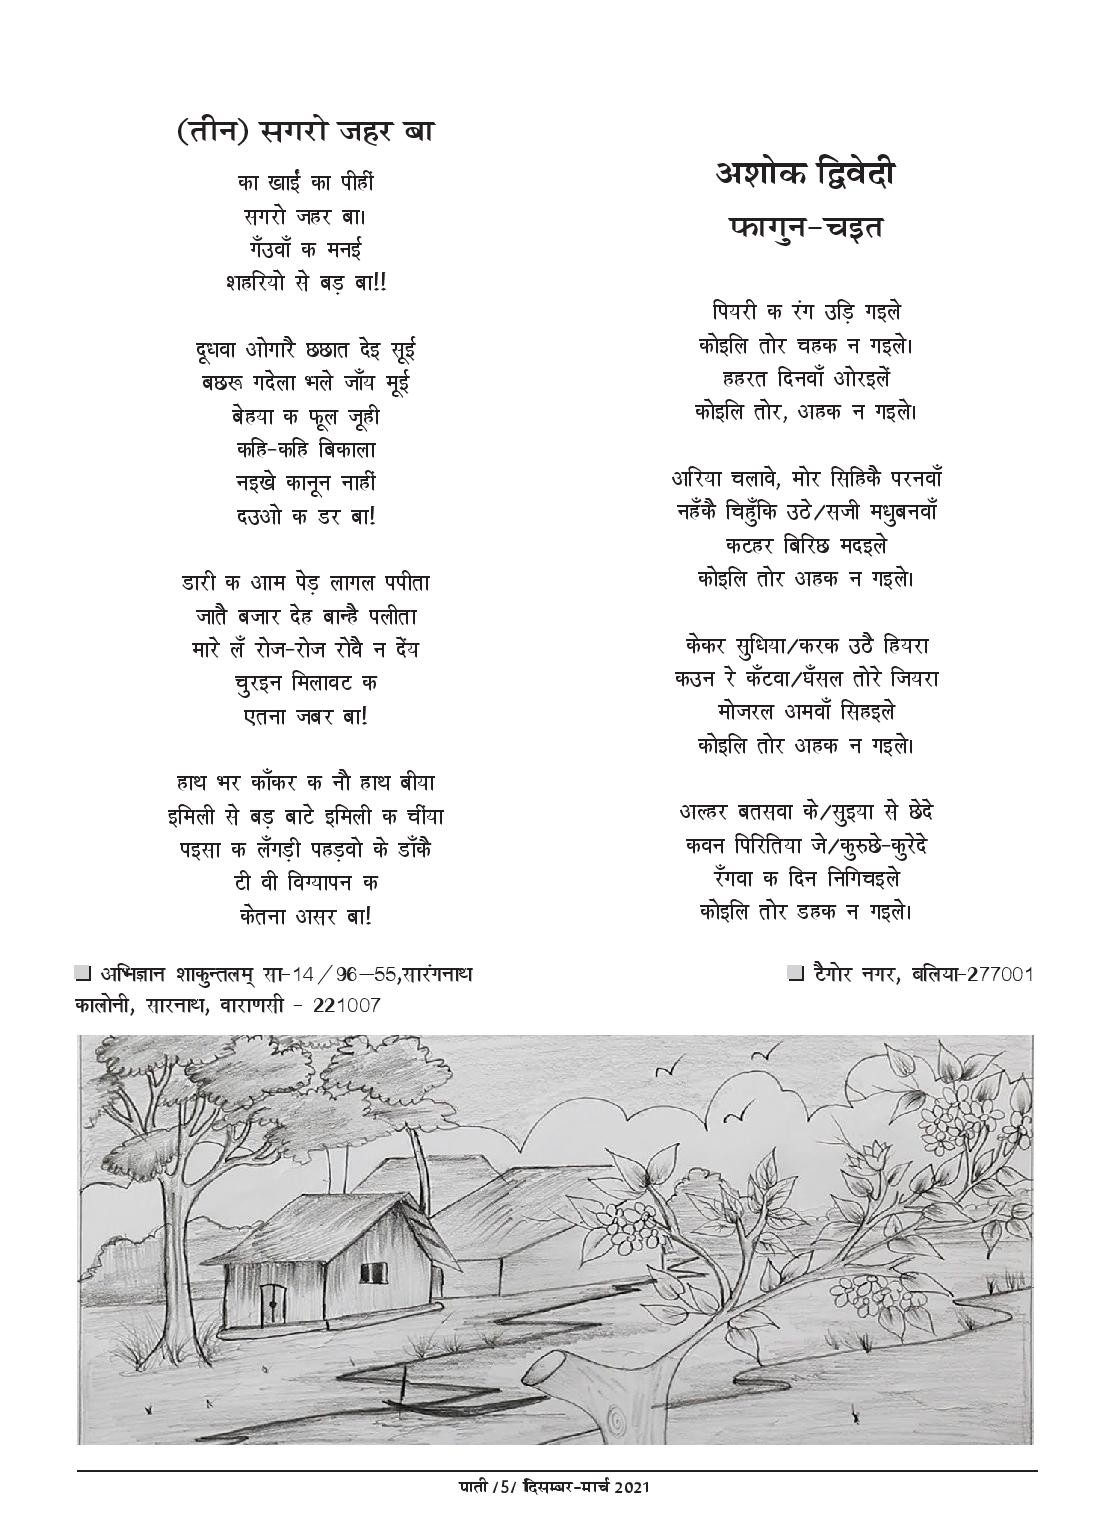 (तीन) सगरो जहर बा
का खाईं का पीहीं
सगरो जहर बा।
गँउवाँ क मनई
शहरियो से बड़ बा!!
दूधवा ओगारै छछात देइ सूई
बछरू गदेला भले जाँय मूई
बेहया क फूल जूही
कहि-कहि बिकाला
नइखे कानून नाहीं
दउओ क डर बा!
डारी क आम पेड़ लागल पपीता
जातै बजार देह बान्है पलीता
मारे लँ रोज-रोज रोवै न देंय
चुरइन मिलावट क
एतना जबर बा!
हाथ भर काँकर क नौ हाथ बीया
इमिली से बड़ बाटे इमिली क चींया
पइसा क लँगड़ी पहड़वो के डाँकै
टी वी विग्यापन क
केतना असर बा!
❑ अभिज्ञान शाकुन्तलम् सा-14/96–55,सारंगनाथ
कालोनी, सारनाथ, वाराणसी - 221007
अशोक द्विवेदी
फागुन-चइत
पियरी क रंग उड़ि गइले
कोइलि तोर चहक न गइले।
हहरत दिनवाँ ओरइलें
कोइलि तोर, अहक न गइले।
अरिया चलावे, मोर सिहिकै परनवाँ
नहँकै चिहुँकि उठे/सजी मधुबनवाँ
कटहर बिरिछ मदइले
कोइलि तोर अहक न गइले।
केकर सुधिया/करक उठै हियरा
कउन रे कँटवा/घँसल तोरे जियरा
मोजरल अमवाँ सिहइले
कोइलि तोर अहक न गइले।
अल्हर बतसवा के/सुइया से छेदे
कवन पिरितिया जे/कुरुछे-कुरेदे
रँगवा क दिन निगिचइले
कोइलि तोर डहक न गइले।
❑ टैगोर नगर, बलिया-277001
पाती /5/ दिसम्बर-मार्च 2021